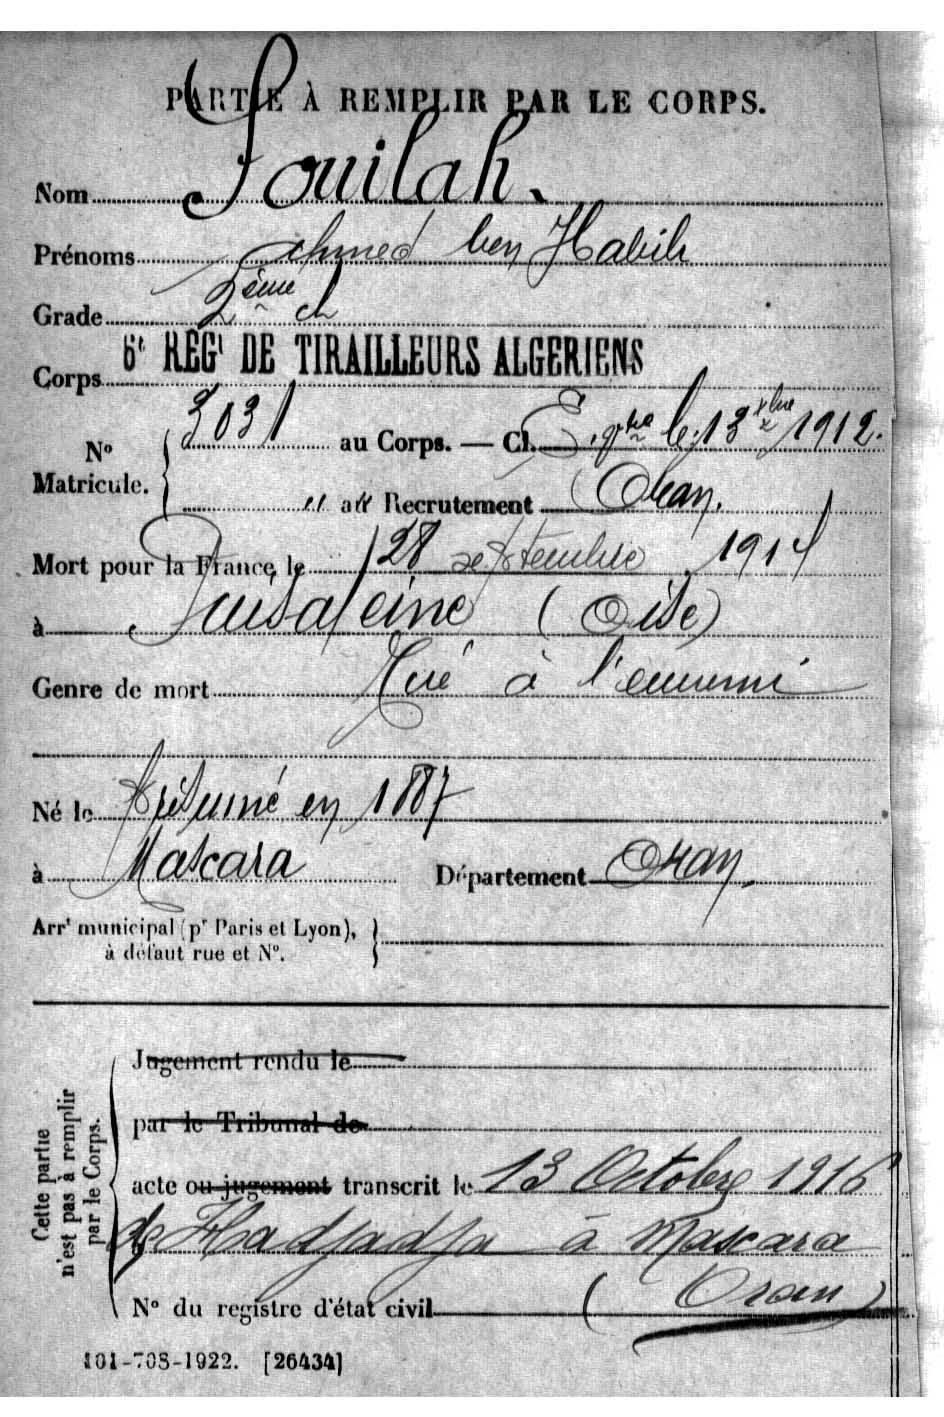 PARTIE À REMPLIR PAR LE CORPS.
Nom Souilah.
Prénoms ahmed ben Habib
Grade 2ème cl
Corps 6e RÉGt DE TIRAILLEURS ALGERIENS
No Matricule. 3031 au Corps. — Cl. E. gté le 13 xbre 1912.
" au Recrutement Oran.
Mort pour la France le 28 septembre 1914
à Puisaleine (Oise)
Genre de mort Tué à l'ennemi
Né le Présumé en 1887
à Mascara Département Oran.
Arrt municipal (pr Paris et Lyon),
à défaut rue et No.
Cette partie n'est pas à remplir par le Corps.
Jugement rendu le
par le Tribunal de
acte ou jugement transcrit le 13 Octobre 1916
de Hadjadja à Mascara
(Oran)
No du registre d'état civil
101-708-1922. [26434]